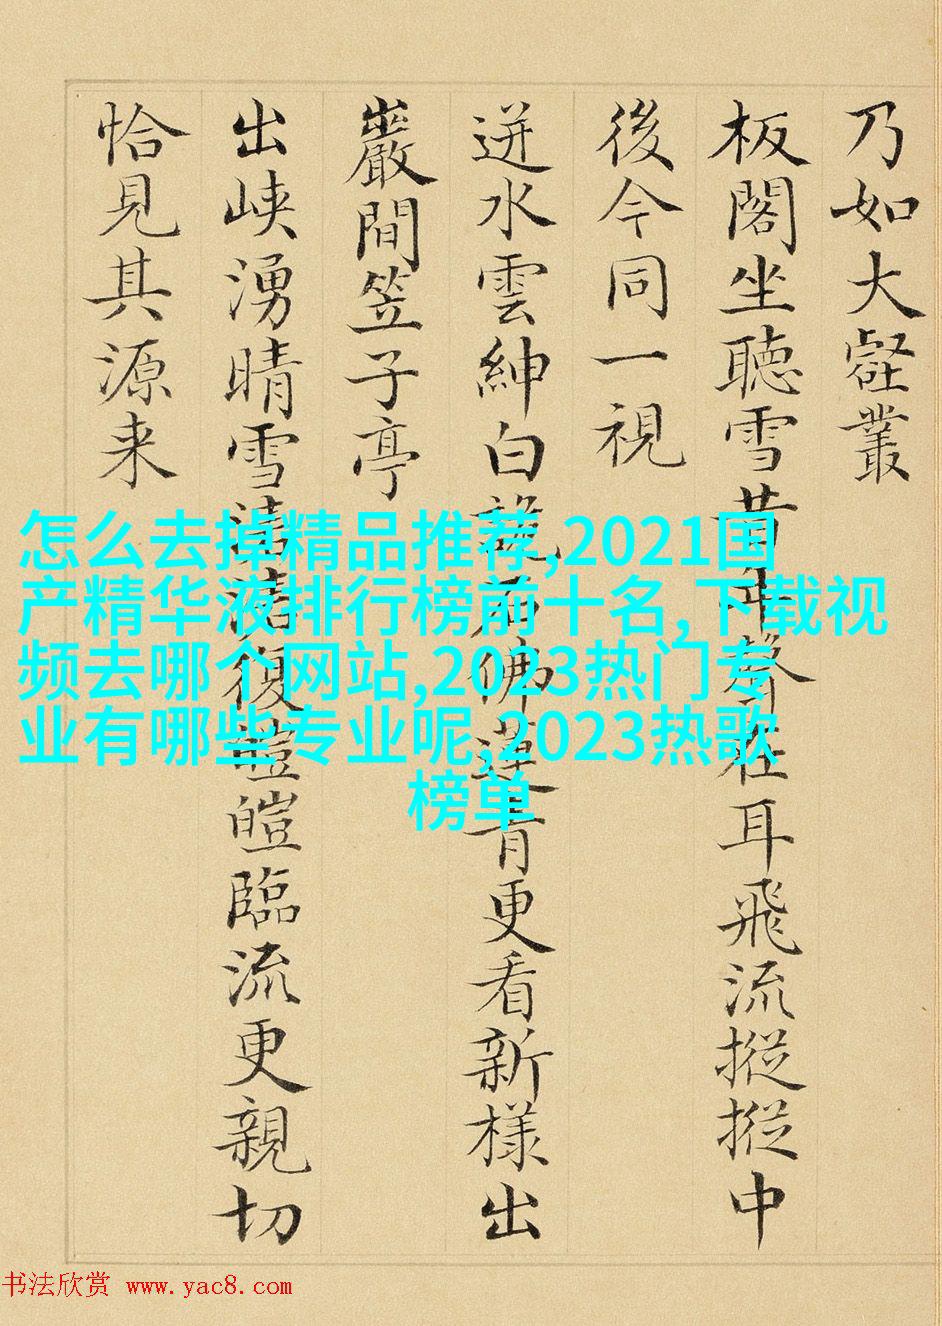 乃如大壑叢
板閣坐聽雪昔年聲在耳飛流摐摐中
後今同一視
迸水雲紳白說石佛蓮青更看新樣出
巖間笠子亭
出峽湧晴雪清清復皚皚臨流更親切
恰見其源来
怎么去掉精品推荐,2021国
产精华液排行榜前十名,下载视
频去哪个网站,2023热门专
业有哪些专业呢,2023热歌
榜单
书法欣赏 www.yac8.com